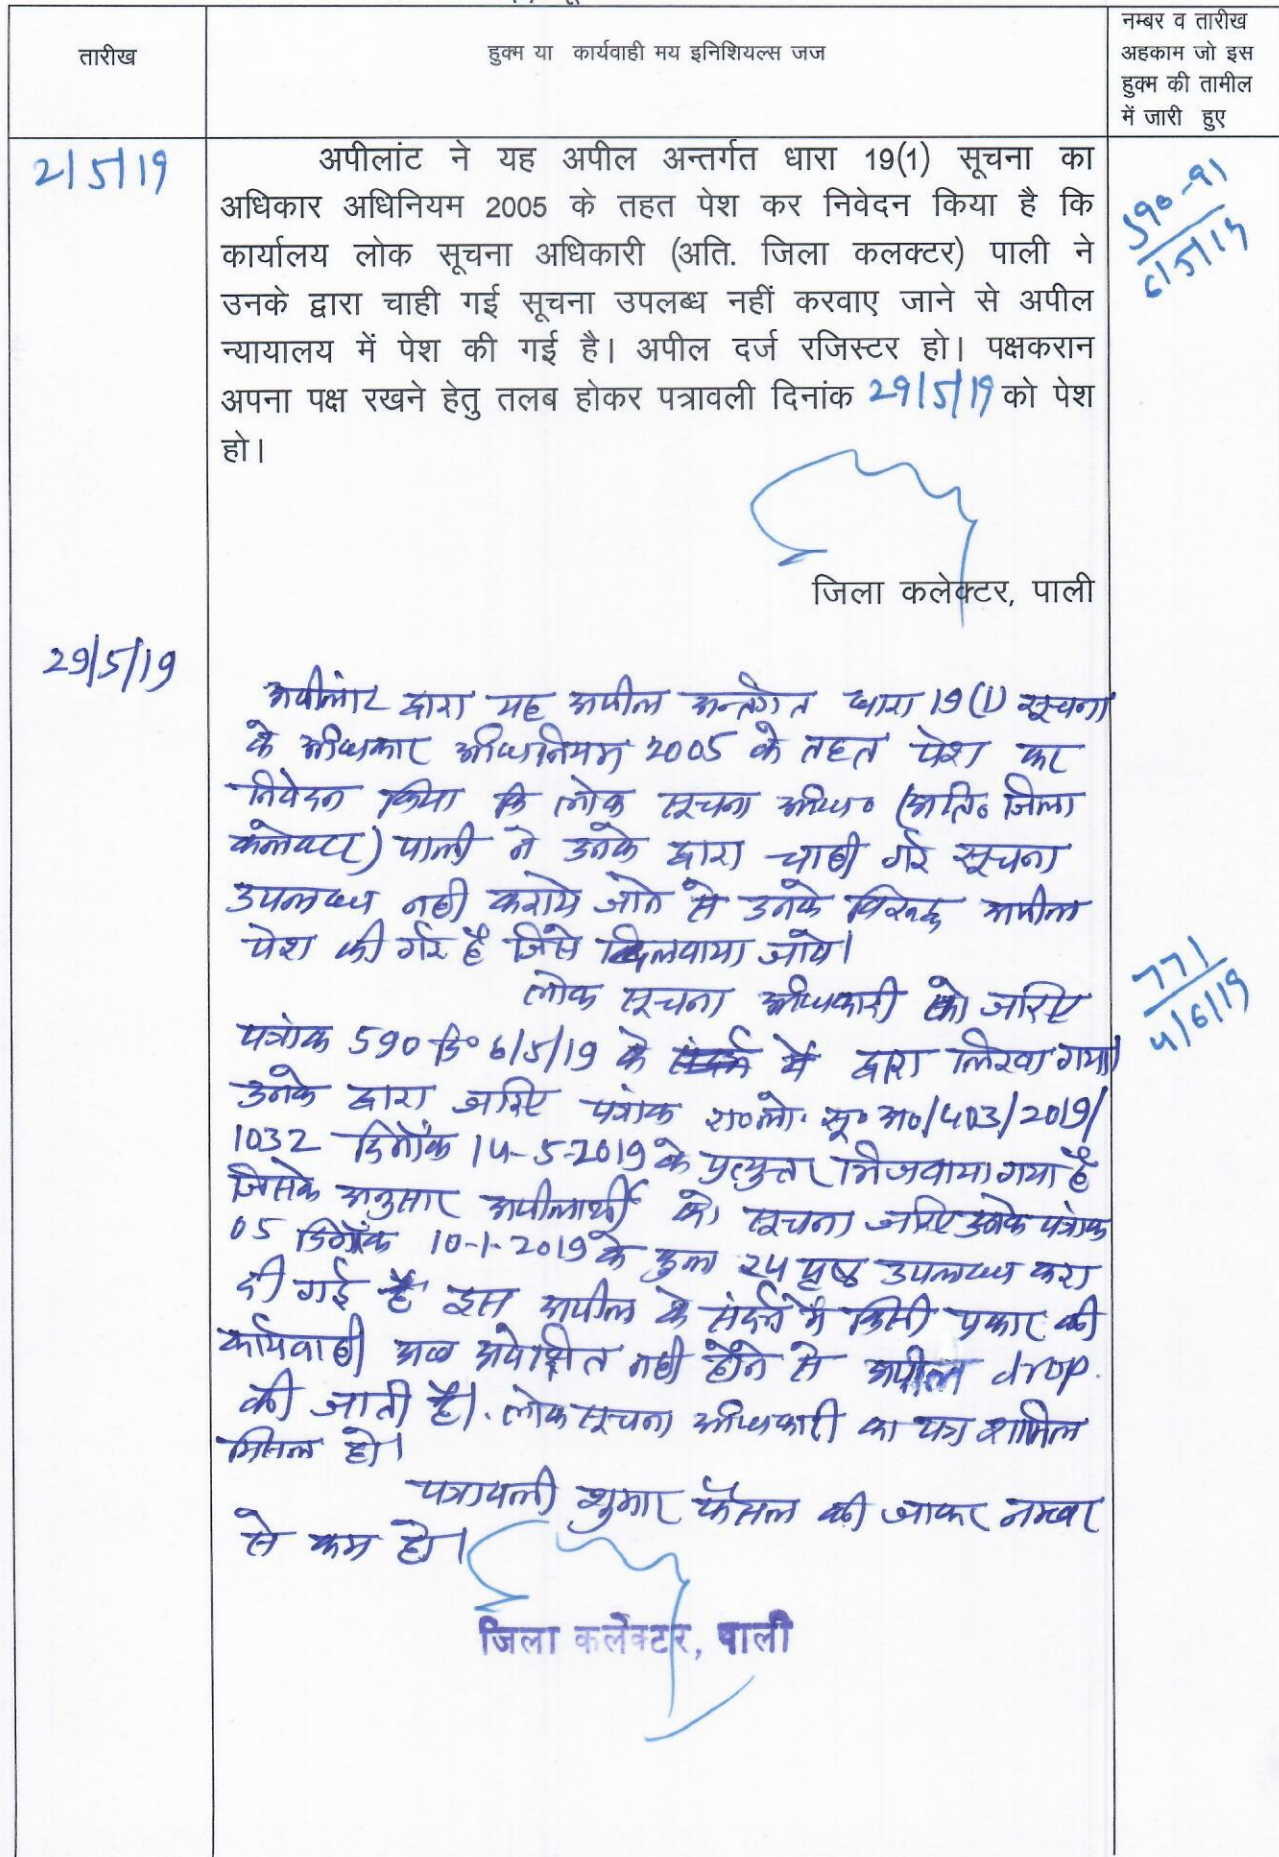 तारीख
हुक्म या कार्यवाही मय इनिशियल्स जज
नम्बर व तारीख
अहकाम जो इस
हुक्म की तामील
में जारी हुए
2/5/19
अपीलांट ने यह अपील अन्तर्गत धारा 19(1) सूचना का
अधिकार अधिनियम 2005 के तहत पेश कर निवेदन किया है कि
कार्यालय लोक सूचना अधिकारी (अति. जिला कलक्टर) पाली ने
उनके द्वारा चाही गई सूचना उपलब्ध नहीं करवाए जाने से अपील
न्यायालय में पेश की गई है। अपील दर्ज रजिस्टर हो। पक्षकरान
अपना पक्ष रखने हेतु तलब होकर पत्रावली दिनांक 29/5/19 को पेश
हो।
590-91
6/5/19
जिला कलेक्टर, पाली
29/5/19
अपीलांट द्वारा यह अपील अन्तर्गत धारा 19(1) सूचना
के अधिकार अधिनियम 2005 के तहत पेश कर
निवेदन किया कि लोक सूचना अधि० (अति० जिला
कलेक्टर) पाली ने उनके द्वारा चाही गई सूचना
उपलब्ध नही कराये जाने से उनके विरूद्ध अपील
पेश की गई है जिसे दिलवाया जावे।
लोक सूचना अधिकारी को जरिए
पत्रांक 590 दि० 6/5/19 के द्वारा लिखा गया।
उनके द्वारा जरिए पत्रांक रा०लो. सू० अ०/403/2019/
1032 दिनाँक 14-5-2019 के प्रत्युत्तर भिजवाया गया है
जिसके अनुसार अपीलार्थी को सूचना जरिए उनके पत्रांक
05 दिनाँक 10-1-2019 के कुल 24 पृष्ठ उपलब्ध करा
दी गई है इस अपील के संदर्भ में किसी प्रकार की
कार्यवाही अब अपेक्षित नही होने से अपील drop.
की जाती है। लोक सूचना अधिकारी का पत्र शामिल
मिसल हो।
पत्रावली शुमार फैसल की जाकर नम्बर
से कम हो।
771
4/6/19
जिला कलेक्टर, पाली